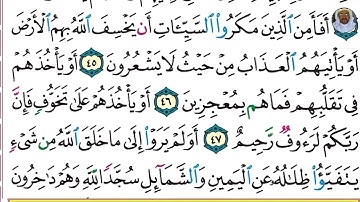 أَفَأَمِنَ ٱلَّذِينَ مَكَرُوا۟ ٱلسَّيِّـَٔاتِ أَن يَخْسِفَ ٱللَّهُ بِهِمُ ٱلْأَرْضَ
أَوْ يَأْتِيَهُمُ ٱلْعَذَابُ مِنْ حَيْثُ لَا يَشْعُرُونَ ٤٥ أَوْ يَأْخُذَهُمْ
فِى تَقَلُّبِهِمْ فَمَا هُم بِمُعْجِزِينَ ٤٦ أَوْ يَأْخُذَهُمْ عَلَىٰ تَخَوُّفٍ فَإِنَّ
رَبَّكُمْ لَرَءُوفٌ رَّحِيمٌ ٤٧ أَوَلَمْ يَرَوْا۟ إِلَىٰ مَا خَلَقَ ٱللَّهُ مِن شَىْءٍ
يَتَفَيَّؤُا۟ ظِلَـٰلُهُۥ عَنِ ٱلْيَمِينِ وَٱلشَّمَآئِلِ سُجَّدًا لِّلَّهِ وَهُمْ دَٰخِرُونَ